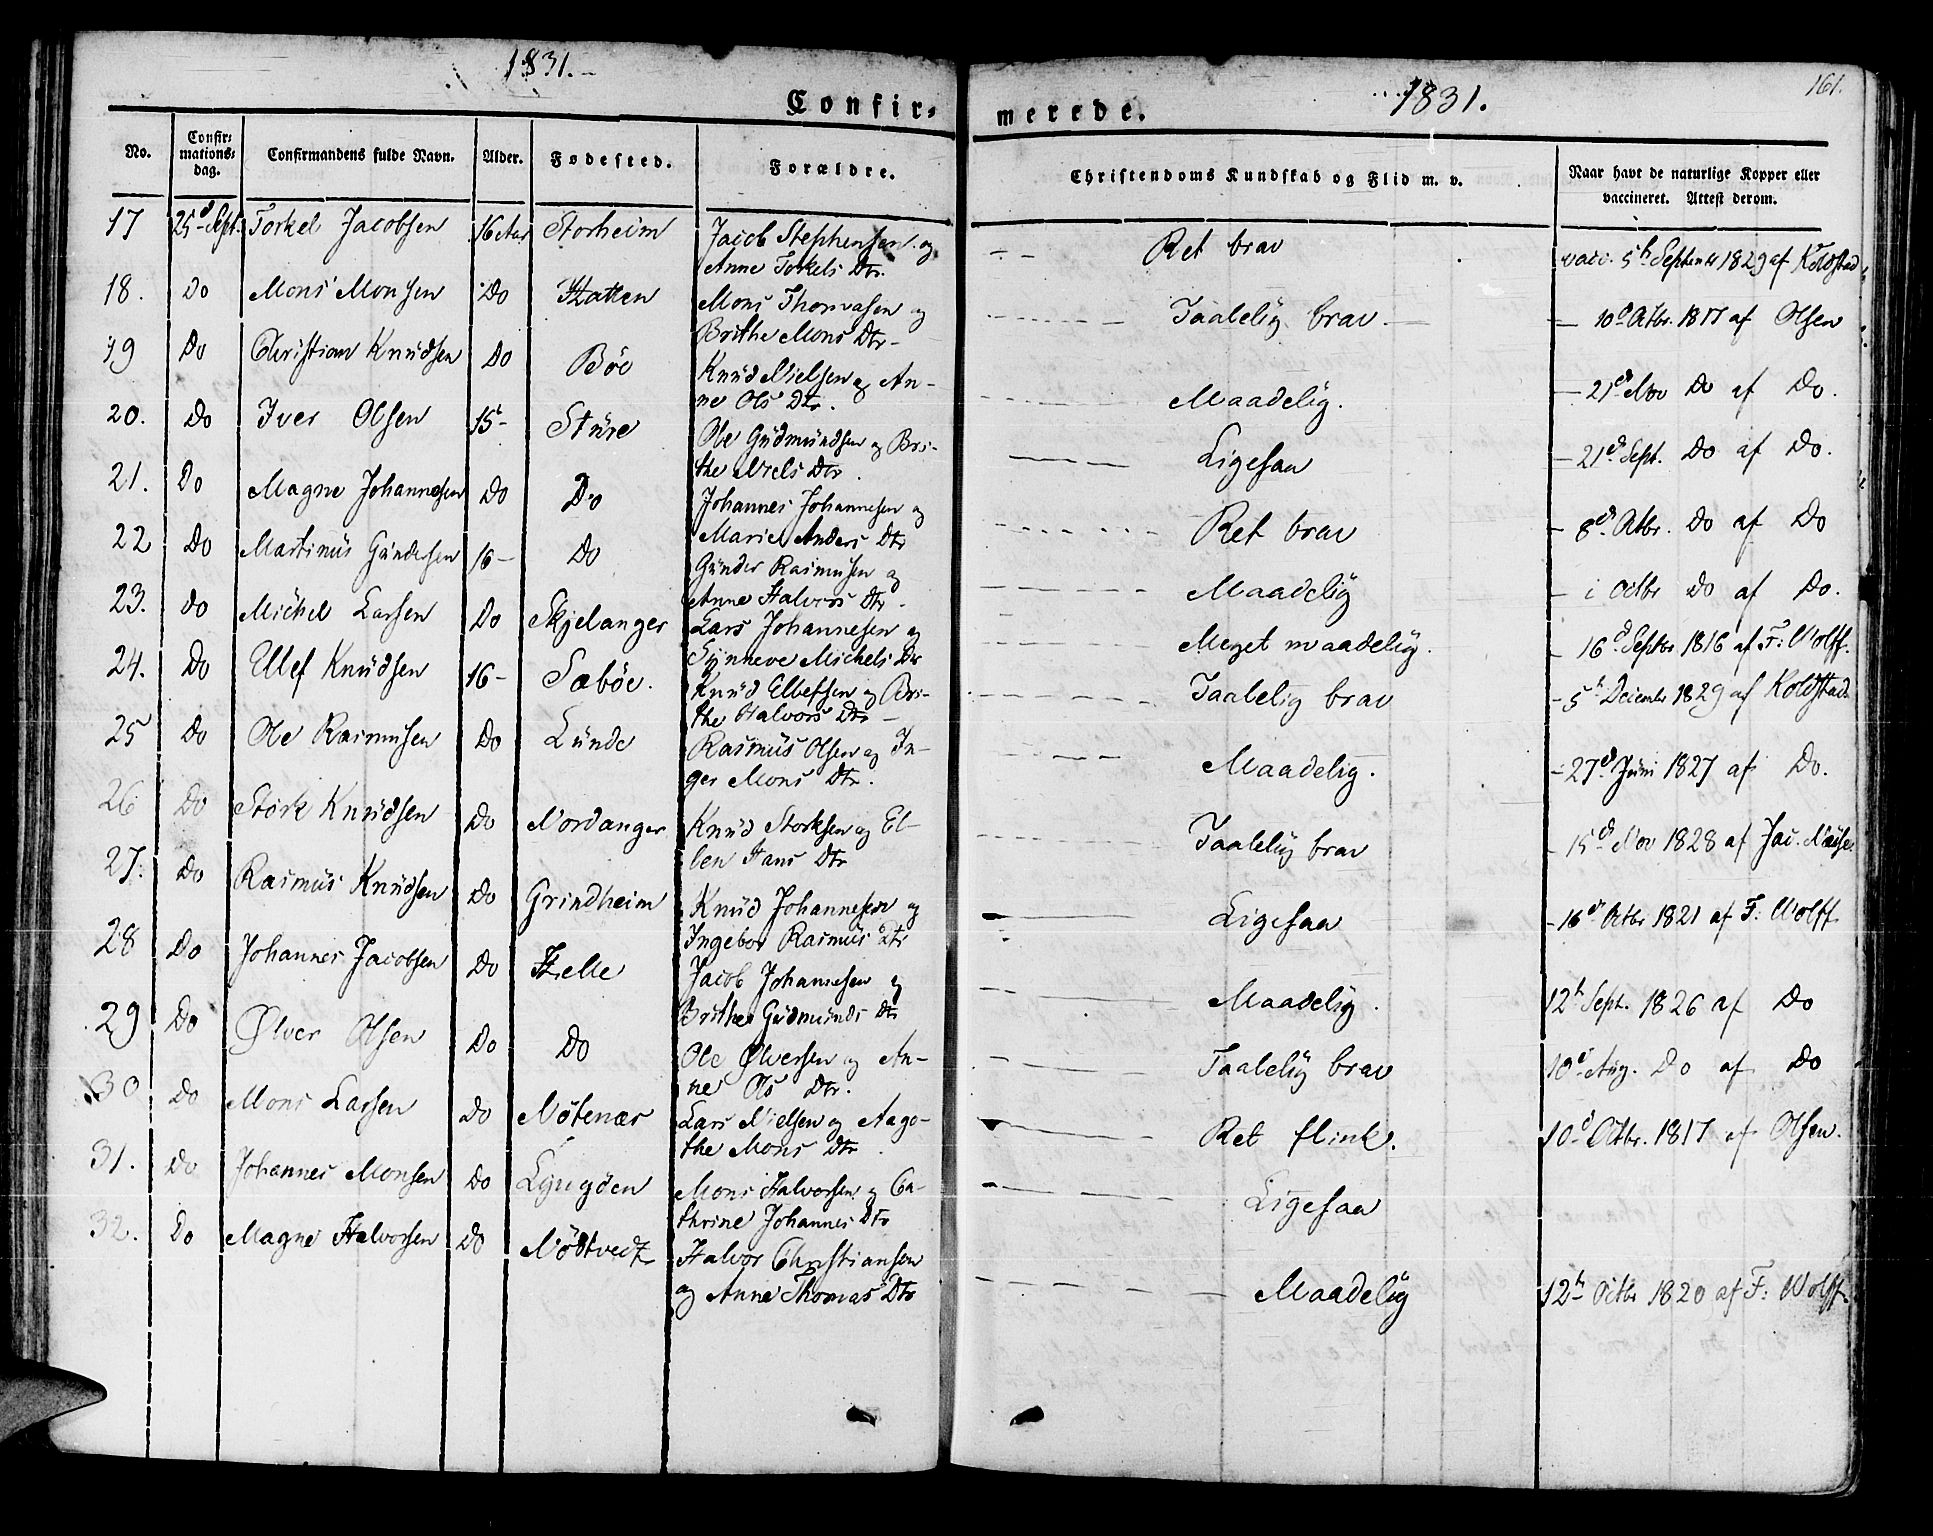 1831.
1831.
161.
Confir-
merede.
No.
Confir-
mations-
dag.
Confirmandens fulde Navn.
Alder.
Fødested.
Forældre.
Christendoms Kundskab og Flid m. v.
Naar havt de naturlige Kopper eller
vaccineret. Attest derom.
17 25d Sept. Torkel Jacobsen 16 Aar Storheim Jacob Stephensen og
Anne Torkels Dtr. Ret brav vacc. 5h Septemr 1829 af Koldstad
18. Do Mons Monsen Do Hatten Mons Thomasen og
Brithe Mons Dtr Taalelig brav 10d Octbr. 1817 af Olsen
19 Do Christian Knudsen Do Böe Knud Nielsen og An-
ne Ols Dtr. Maadelig. 21d Nov Do af Do.
20. Do Iver Olsen 15- Stüre Ole Gudmundsen og Bri-
the Niels Dtr. Ligesaa 21d Sept. Do af Do.
21. Do Magne Johannesen Do Do Johannes Johannesen og
Marie Anders Dtr Ret brav 8d Octbr. Do af Do
22 Do Martinus Gundersen 16- Do Gunder Rasmusen og
Anne Halvors Dtr. Maadelig i Octbr Do af Do.
23. Do Michel Larsen Do Skjelanger Lars Johannesen og
Synneve Michels Dtr Meget maadelig. 16d Septbr. 1816 af F: Wolff.
24. Do Ellef Knudsen 16- Sæböe. Knud Ellefsen og Bri-
the Halvors Dtr Taalelig brav 5h December 1829 af Koldstad
25 Do Ole Rasmusen Do Lunde Rasmus Olsen og In-
ger Mons Dtr. Maadelig. 27d Juni 1827 af Do.
26 Do Stork Knudsen Do Nordanger Knud Storksen og El-
len Hans Dtr Taalelig brav 15d Nov 1828 af Jac.
27. Do Rasmus Knudsen Do Grindheim Knud Johannesen og
Ingebor Rasmus Dtr Ligesaa 16d Octbr 1821 af F: Wolff
28 Do Johannes Jacobsen Do Helle Jacob Johannesen og
Brithe Gudmunds Dtr Maadelig. 12h Sept. 1826 af Do
29 Do Ølver Olsen Do Do Ole Ølversen og An-
ne Ols Dtr. Taalelig brav 10d Aug. Do af Do
30 Do Mons Larsen Do Nötenæs Lars Nielsen og Aago-
the Mons Dtr Ret flink. 10d Octbr. 1817 af Olsen.
31. Do Johannes Monsen Do Mons Halvorsen og Ca-
thrine Johannes Dtr Ligesaa
32. Do Magne Halvorsen Do Nödtvedt Halvor Christiansen
og Anne Thomas Dtr Maadelig 12h Octbr 1820 af F: Wolff